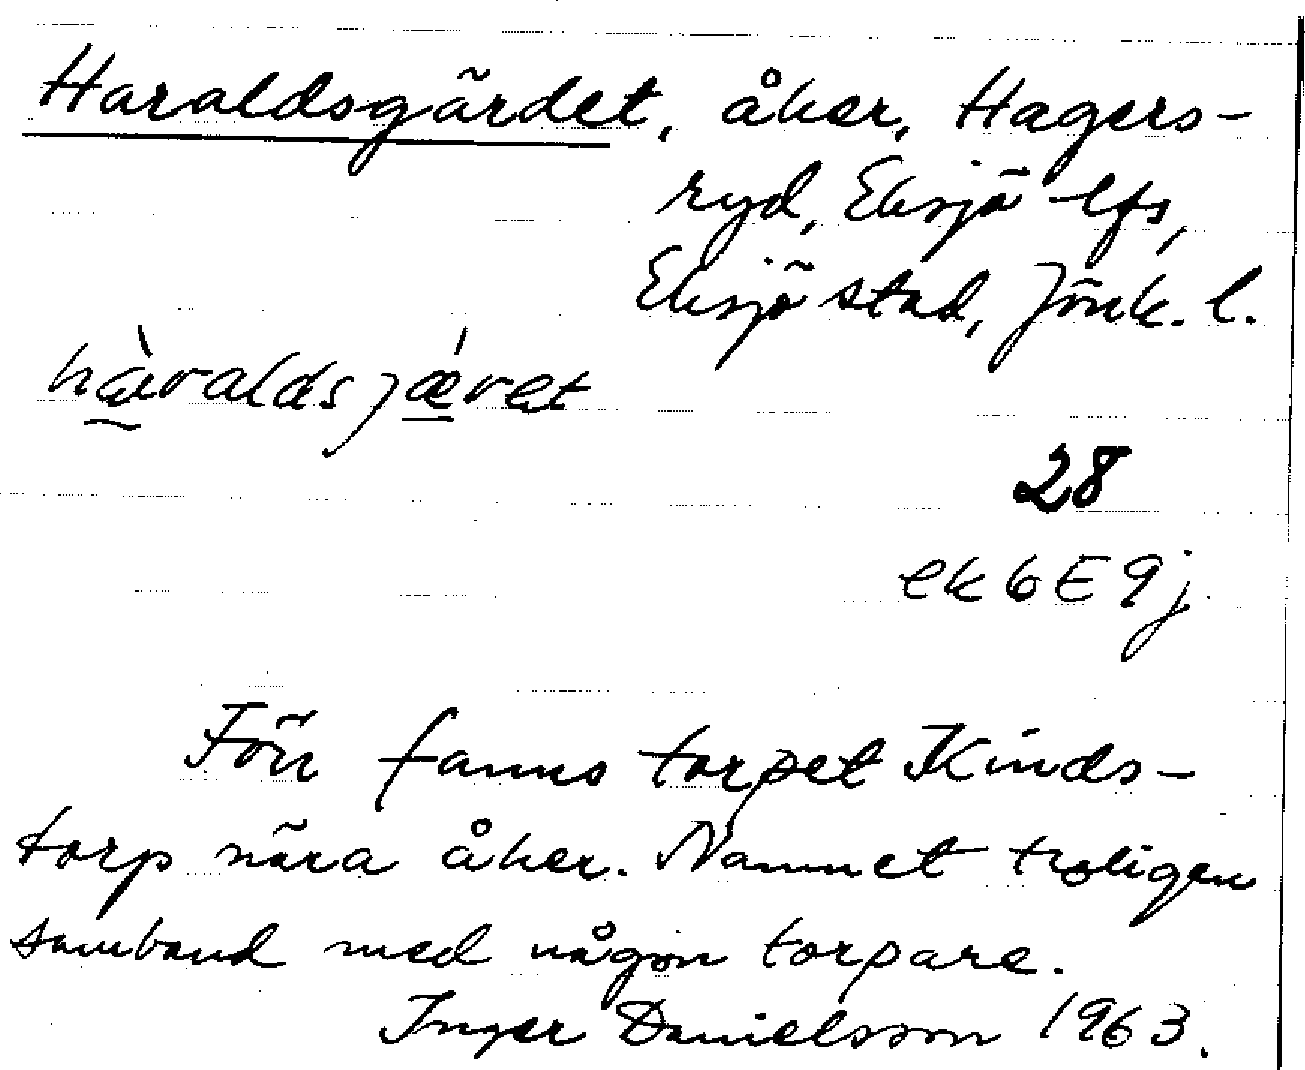 Haraldsgärdet, åker, Hagers-
ryd, Eksjö lfs,
Eksjö stad, Jönk. l.
hàraldsjǽret
28
ek 6 E 9j
Förr fanns torpet Kinds-
torp nära åker. Namnet troligen
samband med någon torpare.
Inger Danielsson 1963.